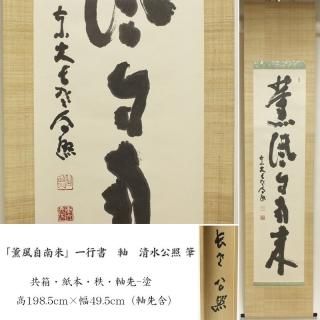 薫風自南来
東大寺公照
長老 公照
「薫風自南来」一行書　軸　清水公照 筆
共箱・紙本・秩・軸先-塗
高198.5cm×幅49.5cm（軸先含）